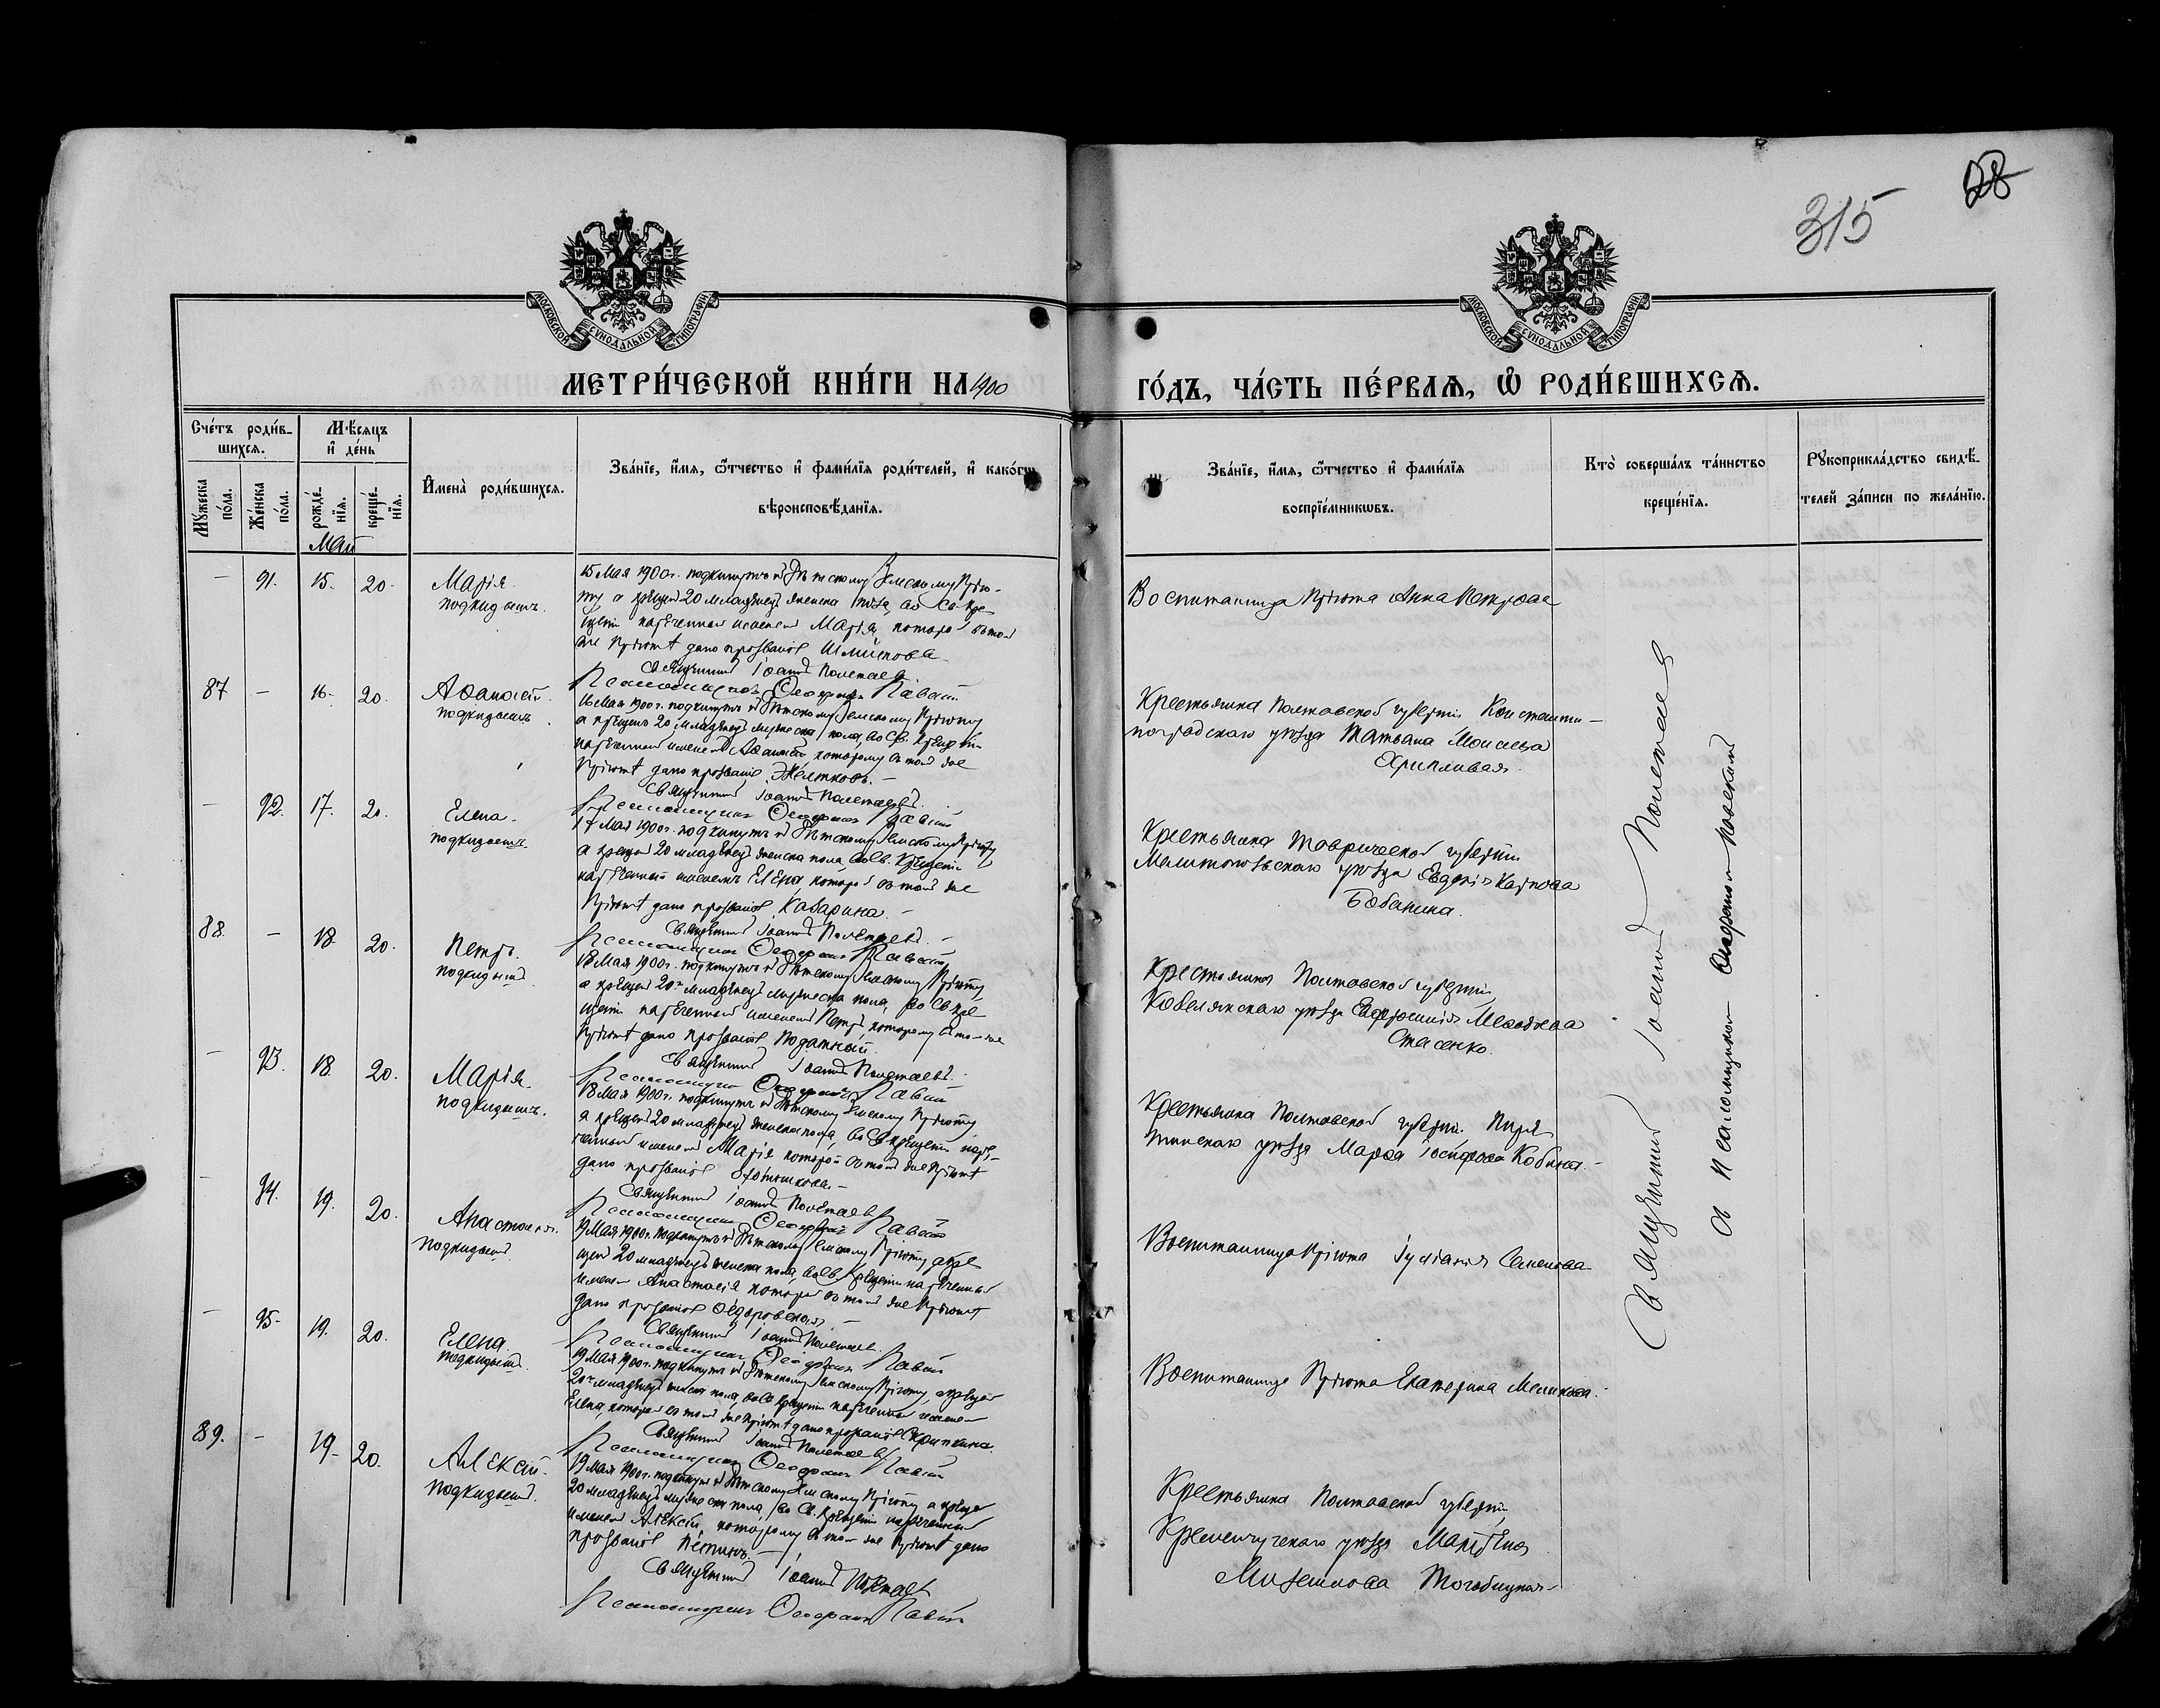 315
МОСКОВСКОЙ СУНОДАЛЬНОЙ ТИПОГРАФІИ
МОСКОВСКОЙ СУНОДАЛЬНОЙ ТИПОГРАФІИ
МЕТРИ́ЧЕСКОЙ КНИ́ГИ НА 1900
ГО́ДЪ, ЧА́СТЬ ПЕ́РВАѦ, Ѡ҆ РОДИ́ВШИХСѦ.
Сче́тъ роди́в-
шихсѧ.
Мꙋ́жеска по́ла.
Же́нска по́ла.
Мѣ́сѧцъ
и҆ де́нь
рожде́-нїѧ.
креще́-нїѧ.
И҆мена̀ роди́вшихсѧ.
Зва́нїе, и҆́мѧ, ѻ҆́тчество и҆ фами́лїѧ роди́телей, и҆ како́гѡ
вѣроисповѣ́данїѧ.
Зва́нїе, и҆́мѧ, ѻ҆́тчество и҆ фами́лїѧ
воспрїе́мникѡвъ.
Кто̀ соверша́лъ та́инство
креще́нїѧ.
Рꙋкоприкла́дство свидѣ́-
телей за́писи по жела́нїю.
Май
— 91. 15. 20.
Марія
подкидышъ.
15 Мая 1900 г. подкинутъ къ Дѣтскому Земскому Прію-
ту, а крещен 20 младенец женска пола, во Св. Кре-
щеніи нареченный именемъ Марія, которой въ том
же Пріютѣ дано прозваніе
Священникъ Іоаннъ Полетаев
Псаломщикъ
Воспитанница Пріюта Анна Петрова
87 — 16. 20.
Аѳанасій
подкидышъ.
16 Мая 1900 г. подкинутъ къ Дѣтскому Земскому Пріюту
а крещенъ 20 младенец мужеска пола, во Св. Крещеніи
нареченный именемъ Аѳанасій, которому въ томъ же
Пріютѣ дано прозваніе Желтковъ. —
Священникъ Іоаннъ Полетаевъ.
Псаломщикъ
Крестьянка Полтавской губерніи Константи-
ноградскаго уѣзда Татьяна Моисеева
Хрипливая.
— 92. 17. 20.
Елена.
подкидышъ.
17 Мая 1900 г. подкинутъ къ Дѣтскому Земскому Пріюту
а крещен 20 младенец женска пола, во Св. Крещеніи
нареченный именемъ Елена, которой въ томъ же
Пріютѣ дано прозваніе Каварина. —
Священникъ Іоаннъ Полетаевъ. —
Псаломщикъ
Крестьянка Таврической губерніи
Мелитопольскаго уѣзда Евдокія Карпова
Бабанина.
88. — 18. 20.
Петръ.
подкидышъ.
18 Мая 1900 г. подкинутъ къ Дѣтскому Земскому Пріюту,
а крещен 20 младенец мужеска пола, во Св. Кре-
щеніи нареченный именемъ Петръ которому въ том же
Пріютѣ дано прозваніе Податный.
Священникъ Іоаннъ Полетаевъ.
Псаломщикъ
Крестьянка Полтавской губерніи
Кобелякскаго уѣзда Евфросинія
Стасенко.
— 93. 18. 20.
Марія.
подкидышъ.
18 Мая 1900 г. подкинутъ къ Дѣтскому Земскому Пріюту
а крещен 20 младенец женска пола, во Св. Крещеніи наре-
ченный именемъ Марія которой въ томъ же Пріютѣ
дано прозваніе
Священникъ Іоаннъ Полетаев
Псаломщикъ
Крестьянка Полтавской губерніи Пиря
тинскаго уѣзда Марѳа Іосифова
— 94. 19. 20.
Анастасія.
подкидышъ.
19 Мая 1900 г. подкинутъ къ Дѣтскому Земскому Пріюту, а кре
щен 20 младенецъ женска пола, во Св. Крещеніи нареченный
именем Анастасія которой въ томъ же Пріютѣ
дано прозваніе
Священникъ Іоаннъ Полетаев.
Псаломщикъ
Воспитанница Пріюта Іуліанія Семенова
— 95. 19. 20.
Елена.
подкидышъ.
19 Мая 1900 г. подкинутъ къ Дѣтскому Земскому Пріюту, а крещен
20 младенецъ женска пола, во Св. Крещеніи нареченный именем
Елена, которой въ томъ же Пріютѣ дано прозваніе Скрипкина.
Священникъ Іоаннъ Полетаев
Псаломщикъ
Воспитанница Пріюта Екатерина
89. — 19. 20.
Алексій.
подкидышъ.
19 Мая 1900 г. подкинутъ къ Дѣтскому Земскому Пріюту а крещен
20 младенецъ мужеска пола, во Св. Крещеніи нареченный
именемъ Алексій, которому въ том же Пріютѣ дано
прозваніе
Священникъ Іоаннъ Полетаев
Псаломщикъ
Крестьянка Полтавской губерніи,
Кременчугскаго уѣзда
Священникъ Іоаннъ Полетаев
и Псаломщикъ